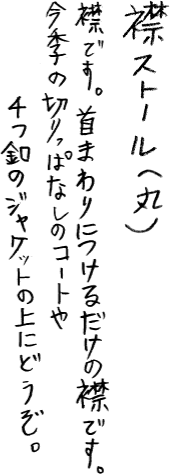 襟ストール(丸)
襟です。首まわりにつけるだけの襟です。
今季の切りっぱなしのコートや
4つ釦のジャケットの上にどうぞ。